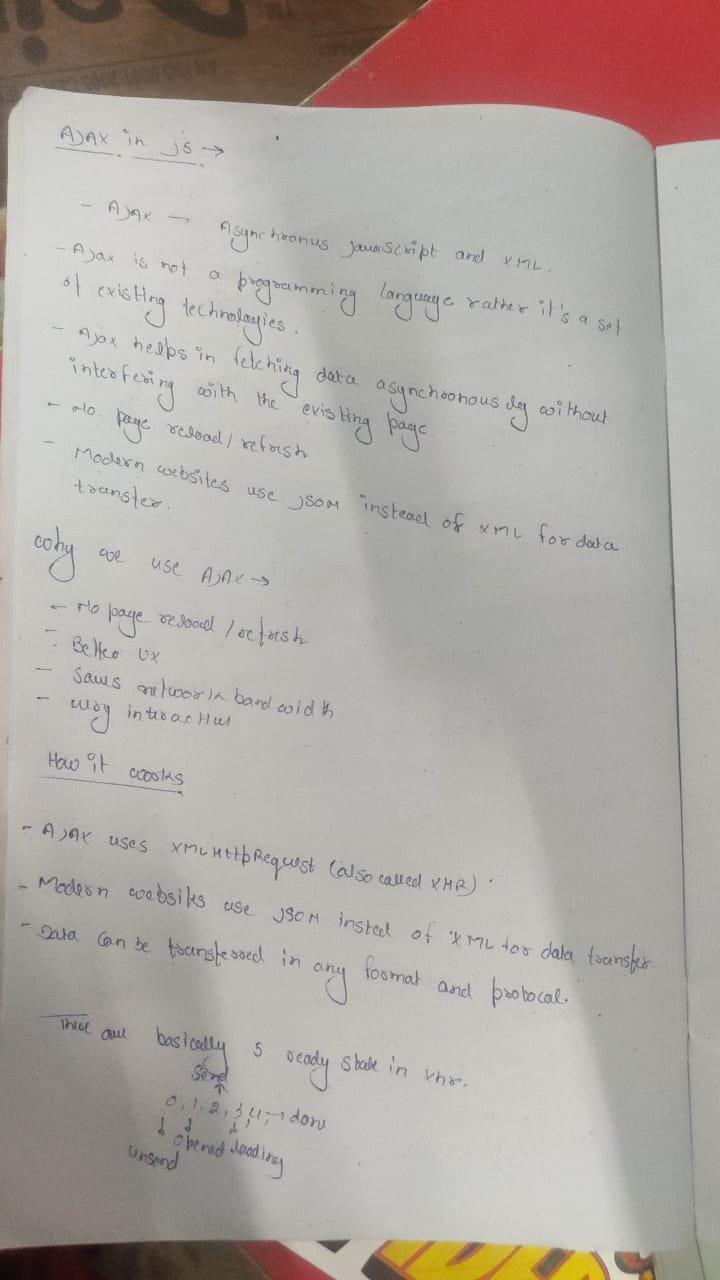 AJAX in JS →
- AJAX → Asynchronus javaScript and XML.
- Ajax is not a programming language rather it's a set
of existing technologies.
- Ajax helps in fetching data asynchronously without
interfering with the existing page
- No. page reload / refresh
- Modern websites use JSON instead of XML for data
transfer.
why we use AJAX →
- No page reload / refresh
- Better UX
- Saves network bandwidth
- very interactive
How it works
- AJAX uses XMLHttpRequest (also called XHR).
- Modern websites use JSON insted of XML for data transfer.
- Data can be transferred in any format and protocal.
There are basically 5 ready state in xhr.
Send
0, 1, 2, 3, 4, → done
opened loading
unsend